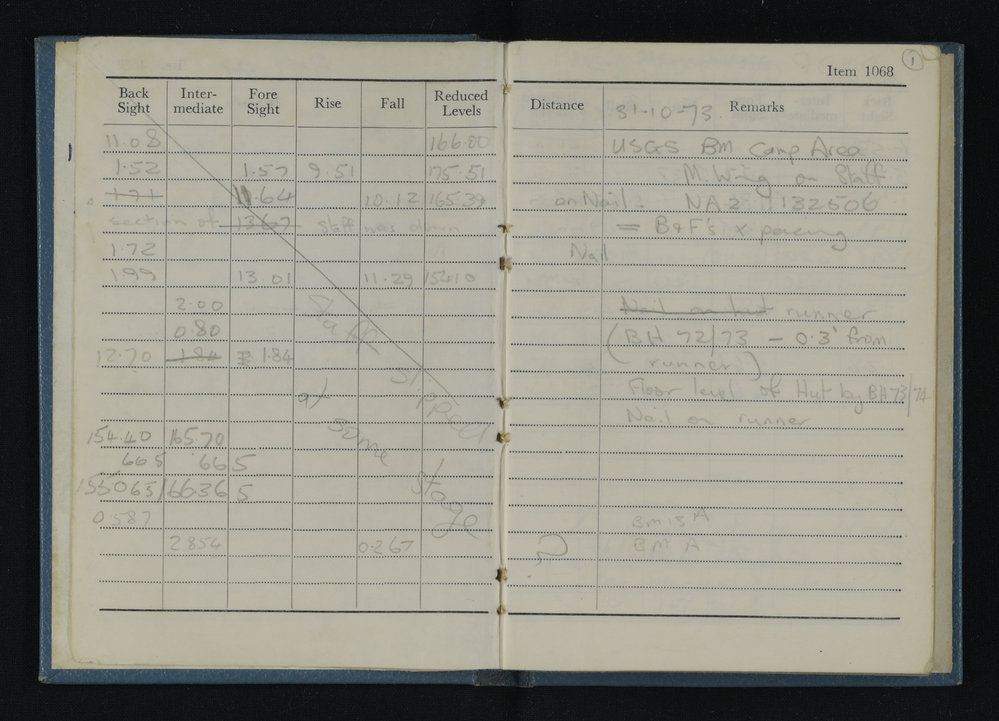 1
Item 1068
Back Sight Inter-mediate Fore Sight Rise Fall Reduced Levels Distance 31-10-73. Remarks
11.08 166.00 USGS BM Camp Area
1.52 1.57 9.51 175.51 M. Wing on Staff
1.71 11.64 10.12 165.39 on Nail: NA2 132506
section of 13.67 staff was down = B&F's x pacing
1.72 Nail
1.99 13.01 11.29 154.10
2.00 Nail on hut runner
0.80 (BH 72/73 – 0.3' from
12.70 1.84 1.84 runner)
Floor level of Hut by BH 73/74
Nail on runner
Staff slipped at some stage
154.40 165.70
665 665
155065 166365
0.587 BM 13 A
2854 0.267 ? BM A